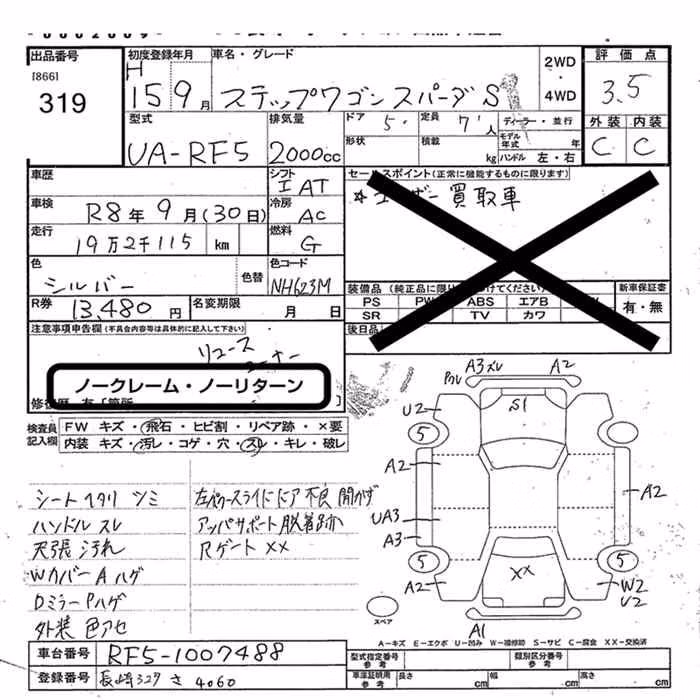 出品番号
[866]
319
初度登録年月
H
15 9月
車名・グレード
ステップワゴン スパーダ S
2WD
・
4WD
評価点
3.5
外装 内装
C C
型式
UA-RF5
排気量
2000cc
ドア 5
定員 7人
ディーラー・並行
形状
積載 kg
モデル年式 年
ハンドル 左・右
車歴
シフト
I AT
車検
R8年9月(30日)
冷房
AC
走行
19万2千115 km
燃料
G
色
シルバー
色替
色コード
NH623M
R券
13,480円
名変期限 月 日
セールスポイント(正常に機能するものに限ります)
☆ユーザー買取車
装備品
PS PW ABS エアB
SR TV カワ
新車保証書
有・無
後日品
注意事項申告欄(不具合内容等は具体的に記入して下さい)
リユース
コーナー
ノークレーム・ノーリターン
検査員
記入欄
FW キズ・飛石・ヒビ割・リペア跡・×要
内装 キズ・汚レ・コゲ・穴・スレ・キレ・破レ
シートヘタリ シミ
左パワースライドドア 不良 開かず
ハンドル スレ
アッパサポート脱着跡
天張汚れ
Rゲート ××
Wカバー A ハゲ
Dミラー P ハゲ
外装 色アセ
A3 スレ
A2
ワレ
U2
S1
5
A2
A2
UA3
A3
5
5
××
A2
W2
U2
A1
スペア
A-キズ E-エクボ U-凹み W-補修跡 S-サビ C-腐食 XX-交換済
車台番号
RF5-1007488
登録番号
長崎327 さ 4060
型式指定番号
参考
類別区分番号
参考
車庫証明用
参考
長さ cm
幅 cm
高さ cm